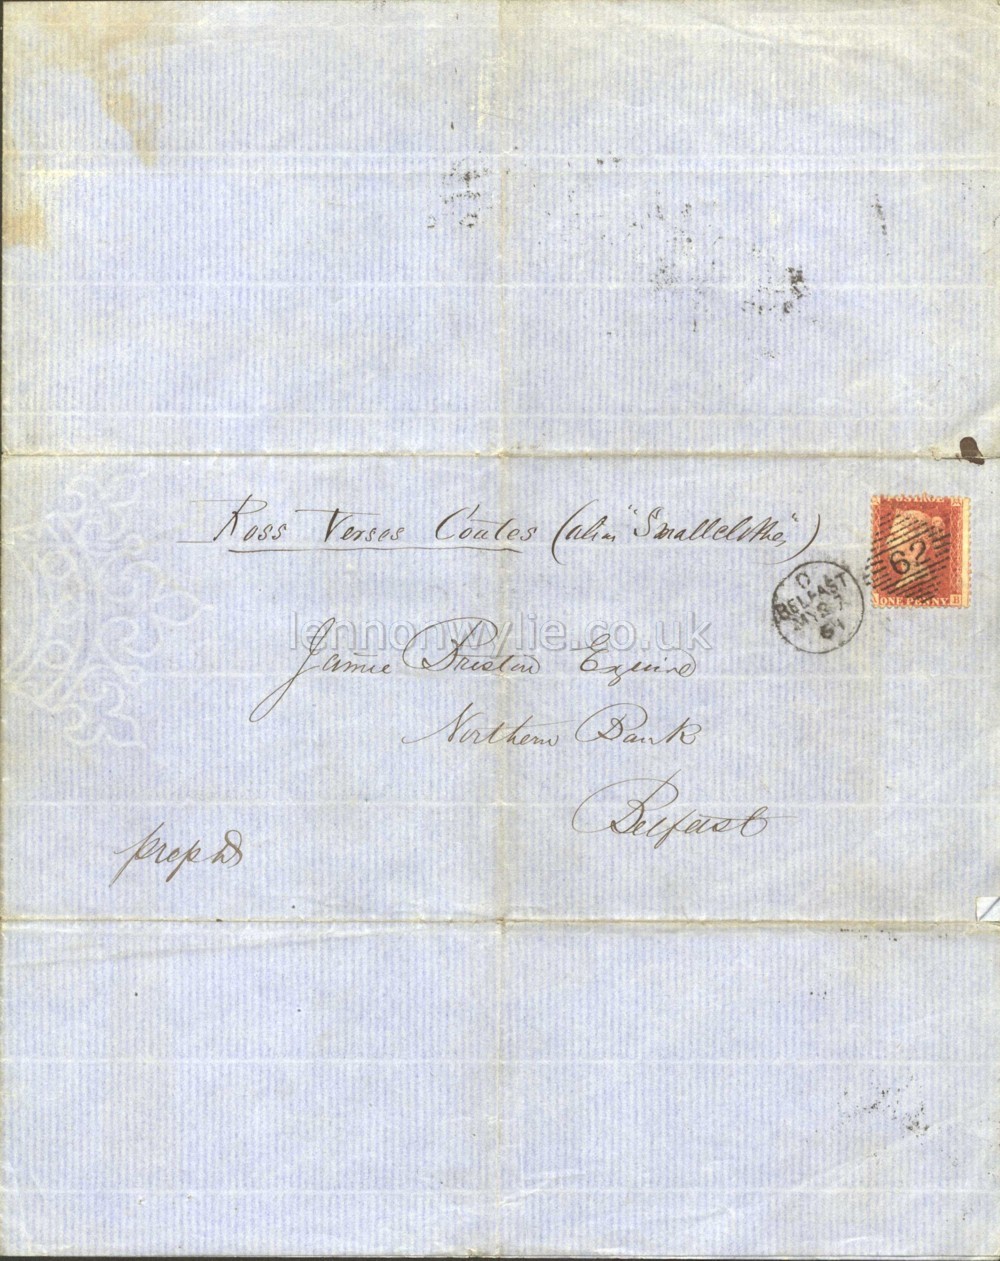 Ross Verses Coates (alias "Smallclothes")
62
ONE PENNY B
D
BELFAST
MY 27
64
lennonwylie.co.uk
Jamie Preston Esquire
Northern Bank
Belfast
prepd